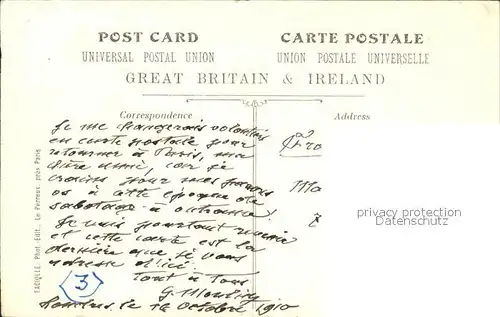 POST CARD
CARTE POSTALE
UNIVERSAL POSTAL UNION
UNION POSTALE UNIVERSELLE
GREAT BRITAIN & IRELAND
Correspondence
Address
Je me changerais volontiers
en carte postale pour
retourner à Paris, ma
chère amie, car je
crains pour mes pauvres
os à cette époque de
sabotage à outrance!
Je puis pourtant revenir
et cette carte est la
dernière que je vous
adresse d'ici.
Tout à tous
G.
Londres, le octobre 1910
3
Fro
Ma
privacy protection
Datenschutz
FACIOLLE Phot.-Edit. Le Perreux, près Paris